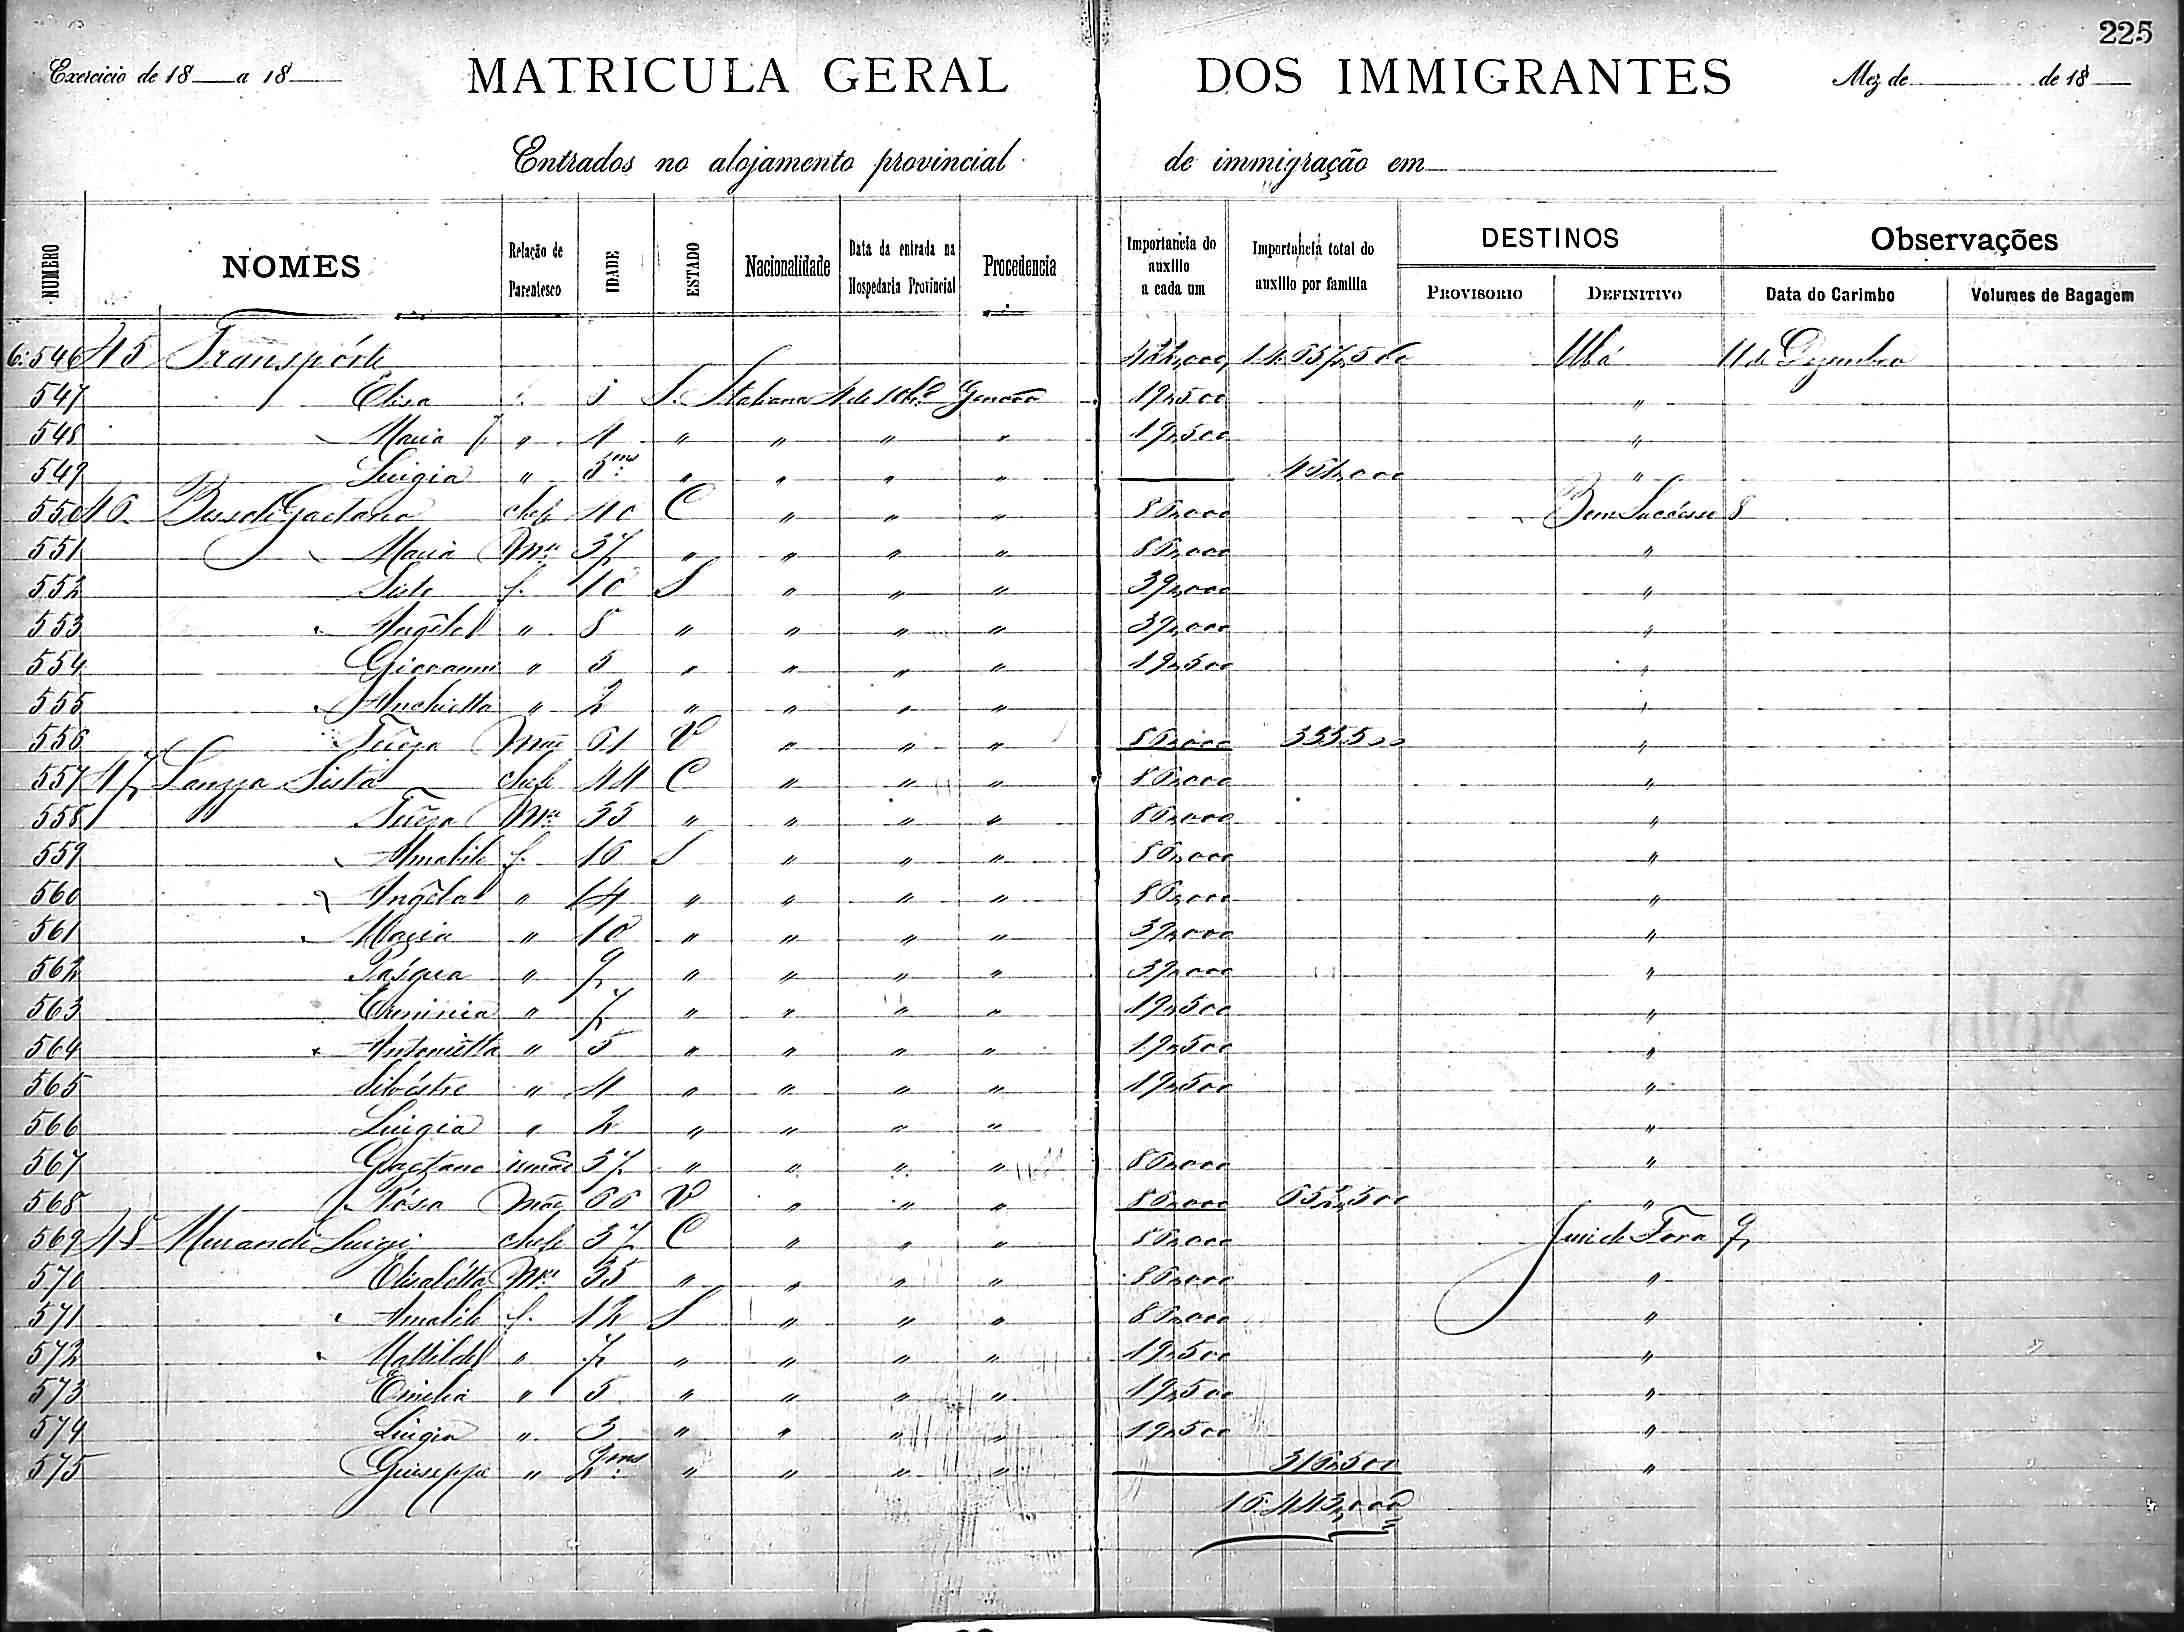 225
Exercicio de 18 a 18 MATRICULA GERAL DOS IMMIGRANTES Mez de de 18
Entrados no alojamento provincial de immigração em
NUMERO NOMES Relação de Parentesco IDADE ESTADO Nacionalidade Data da entrada na Hospedaria Provincial Procedencia Importancia do auxilio a cada um Importancia total do auxilio por familia DESTINOS PROVISORIO DEFINITIVO Observações Data do Carimbo Volumes de Bagagem
6:546 45 Transpórte Ubá 11 de Dezembro
547 Elisa S. Italiana Genova 19,500 "
548 Maria " 4 " " " " 19,500 "
549 Luigia " 5 ms " " " " "
550 46 Gaetano chefe 40 C " " " 86,000 Bom Succésso 8
551 Maria Mer 37 " " " " 86,000 "
552 f. 10 S " " " 39,000 "
553 " 8 " " " " 39,000 "
554 Giovanni " 5 " " " " 19,500 "
555 " 2 " " " " "
556 Teréza Mãe 61 V " " " 86,000 355,500 "
557 47 chefe 44 C " " " 86,000 "
558 Teréza Mer 35 " " " " 86,000 "
559 Amabile f. 16 S " " " 86,000 "
560 Angéla " 14 " " " " 86,000 "
561 Maria " 10 " " " " 39,000 "
562 Pasqua " 9 " " " " 39,000 "
563 Erminia " 7 " " " " 19,500 "
564 Antoniétta " 5 " " " " 19,500 "
565 Silvéstre " 4 " " " " 19,500 "
566 Luigia " 2 " " " " "
567 Gaetano irmão 37 " " " " 86,000 "
568 Rósa Mãe 66 V " " " 86,000 652,500 "
569 48 Morandi Luigi chefe 37 C " " " 86,000 Juiz de Fora 9
570 Elisabétta Mer 35 " " " " 86,000 "
571 Amabile f. 12 S " " " 86,000 "
572 Mathilde " 7 " " " " 19,500 "
573 Emilia " 5 " " " " 19,500 "
574 Luigia " 3 " " " " 19,500 "
575 Giuseppe " 2 ms " " " " 316,500 "
16.443,000